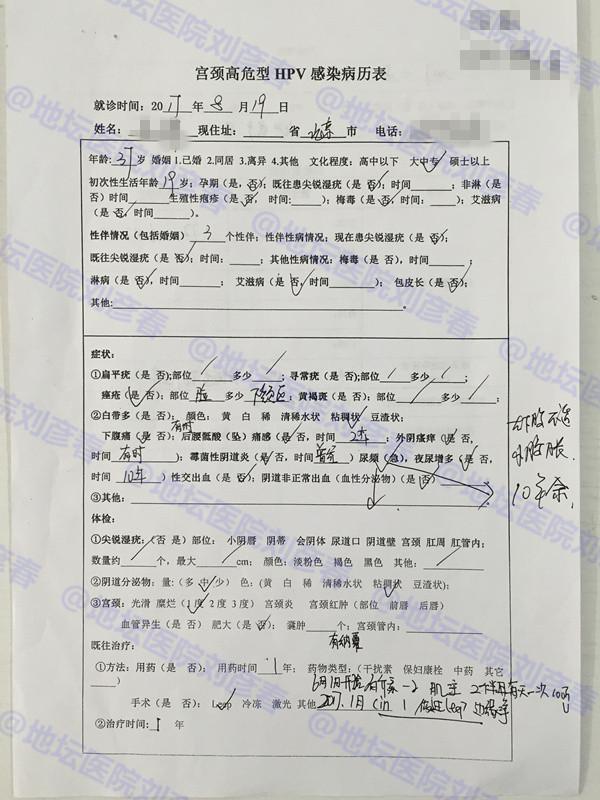 宫颈高危型 HPV 感染病历表
就诊时间：2017 年 8 月 19 日
姓名： 现住址： 省 北京 市 电话：
年龄：37 岁 婚姻 1.已婚 2.同居 3.离异 4.其他 文化程度：高中以下 大中专 硕士以上
初次性生活年龄 19 岁；孕期（是，否）；既往患尖锐湿疣（是 否）；时间 ；非淋（是
否）时间 生殖性疱疹（是 否， 时间： ）；梅毒（是 否，时间： ）；艾滋病
（是 否，时间 ）。
性伴情况（包括婚姻） 3 个性伴；性伴性病情况：现在患尖锐湿疣（是 否）；
既往尖锐湿疣（是 否）；时间： ；其他性病情况：梅毒（是 否），时间 ；
淋病（是 否），时间 ； 艾滋病（是 否，时间 ）； 包皮长（是 否）；
其他：
症状：
①扁平疣（是 否）；部位 多少 ； 寻常疣（是 否）；部位 多少 ；
痤疮（是 否）：部位 脸 多少 ；黄褐斑（是 否）：部位 多少 ；
②白带多（是 否）： 颜色： 黄 白 稀 清稀水状 粘稠状 豆渣状；
有时
下腹痛（是 否）；后腰骶酸（坠）痛感（是 否，时间 2年 ）；外阴瘙痒（是 否，
时间 有时 ）；霉菌性阴道炎（是 否，时间 ）尿频（急），夜尿增多（是 否，
时间 10年 ）性交出血（是 否）；阴道非正常出血（血性分泌物）（是 否）
③其他：
小腹胀
10年余，
体检：
①尖锐湿疣：（否 是）部位： 小阴唇 阴蒂 会阴体 尿道口 阴道壁 宫颈 肛周 肛管内；
数量约 个，最大 cm； 颜色：淡粉色 褐色 黑色 其他：
②阴道分泌物：量：（多 中 少） 色：(黄 白 稀 清稀水状 粘稠状 豆渣状)；
③宫颈：光滑 糜烂（1 度 2 度 3 度） 宫颈炎 宫颈红肿（部位 前唇 后唇）
血管异生（是 否） 肥大（是 否）； 囊肿 个；宫颈管内：
有纳囊
既往治疗：
①方法：用药（是 否）： 用药时间 1 年； 药物类型：（干扰素 保妇康栓 中药 其它
）
手术（是 否）： Leep 冷冻 激光 其他 2017.1月 Cin 1
②治疗时间：1 年
@地坛医院刘彦春